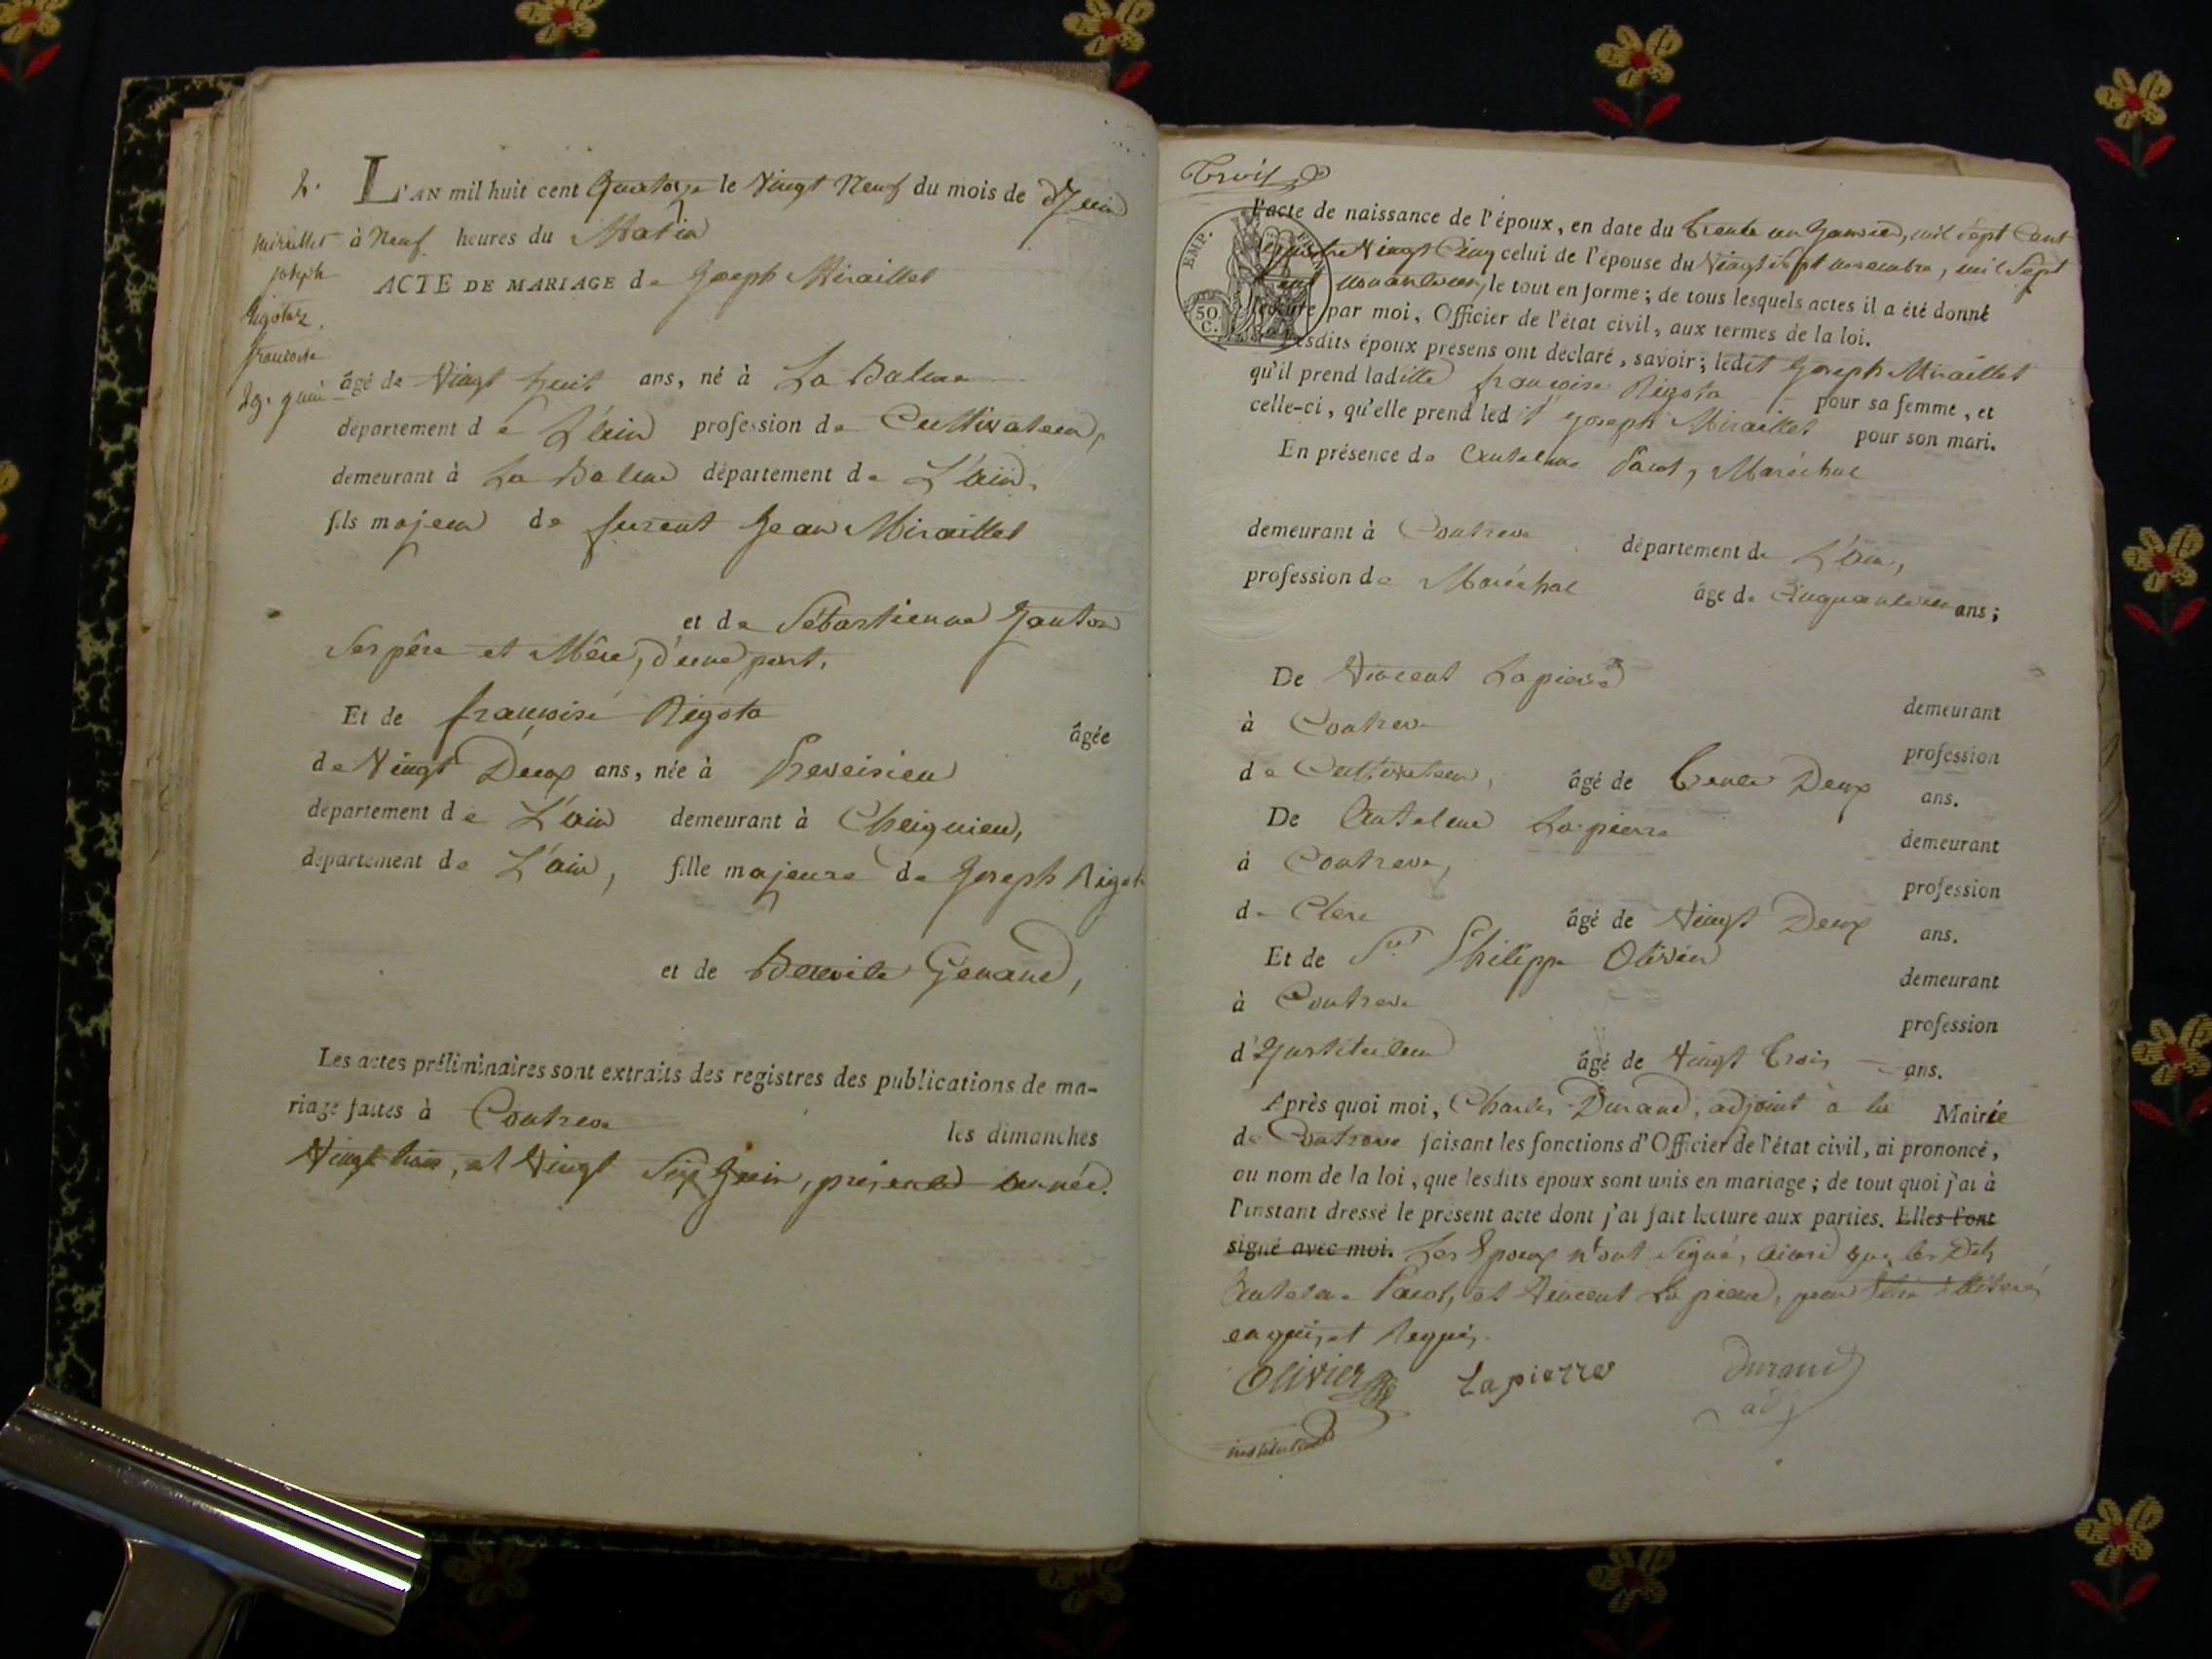 2.
L'AN mil huit cent Quatorze le Vingt Neuf du mois de Juin
à Neuf heures du Matin
ACTE DE MARIAGE de Joseph Miraillet
miraillet
joseph
Rigotaz
françoise
29. juin
âgé de Vingt huit ans, né à La Balme
département de L'ain profession de Cultivateur,
demeurant à La Balme département de L'ain,
fils majeur de furent Jean Miraillet
et de Sébastienne Janton
Ses père et Mère, d'une part,
Et de françoise Rigota
âgée
de Vingt Deux ans, née à
département de L'ain demeurant à Cheignieu,
département de L'ain, fille majeure de Joseph Rigota
et de Benoite Genand,
Les actes préliminaires sont extraits des registres des publications de ma-
riage faites à Contrevoz
les dimanches
Vingt, et Vingt Six Juin, présente année.
Trois
EMP. FRAN
50. C.
l'acte de naissance de l'époux, en date du trente un Janvier, mil sept Cent
quatre Vingt Cinq celui de l'épouse du Vingt sept novembre, mil Sept
cent, le tout en forme ; de tous lesquels actes il a été donné
lecture par moi, Officier de l'état civil, aux termes de la loi.
Lesdits époux présens ont déclaré, savoir ; ledit Joseph Miraillet
qu'il prend ladite françoise Rigota pour sa femme, et
celle-ci, qu'elle prend ledit Joseph Miraillet pour son mari.
En présence de Antelme, Maréchal
demeurant à Contrevoz département de L'ain,
profession de Maréchal âgé de ans ;
De Vincent Lapierre
demeurant
à Contrevoz
profession
de Cultivateur, âgé de trente Deux ans.
De Antelme Lapierre
demeurant
à Contrevoz,
profession
de Clerc âgé de Vingt Deux ans.
Et de Sr. Philippe Olivier
demeurant
à Contrevoz
profession
d'Instituteur âgé de Vingt trois ans.
Après quoi moi, Charles Durand, adjoint à la Mairie
de Contrevoz faisant les fonctions d'Officier de l'état civil, ai prononcé,
au nom de la loi, que lesdits époux sont unis en mariage ; de tout quoi j'ai à
l'instant dressé le présent acte dont j'ai fait lecture aux parties. Elles l'ont
signé avec moi. Les Epoux n'ont signé, ainsi que les Dits
Antelme, et Vincent Lapierre, pour être illiterés
enquis et Requis.
Olivier Lapierre Durand
adj
instituteur